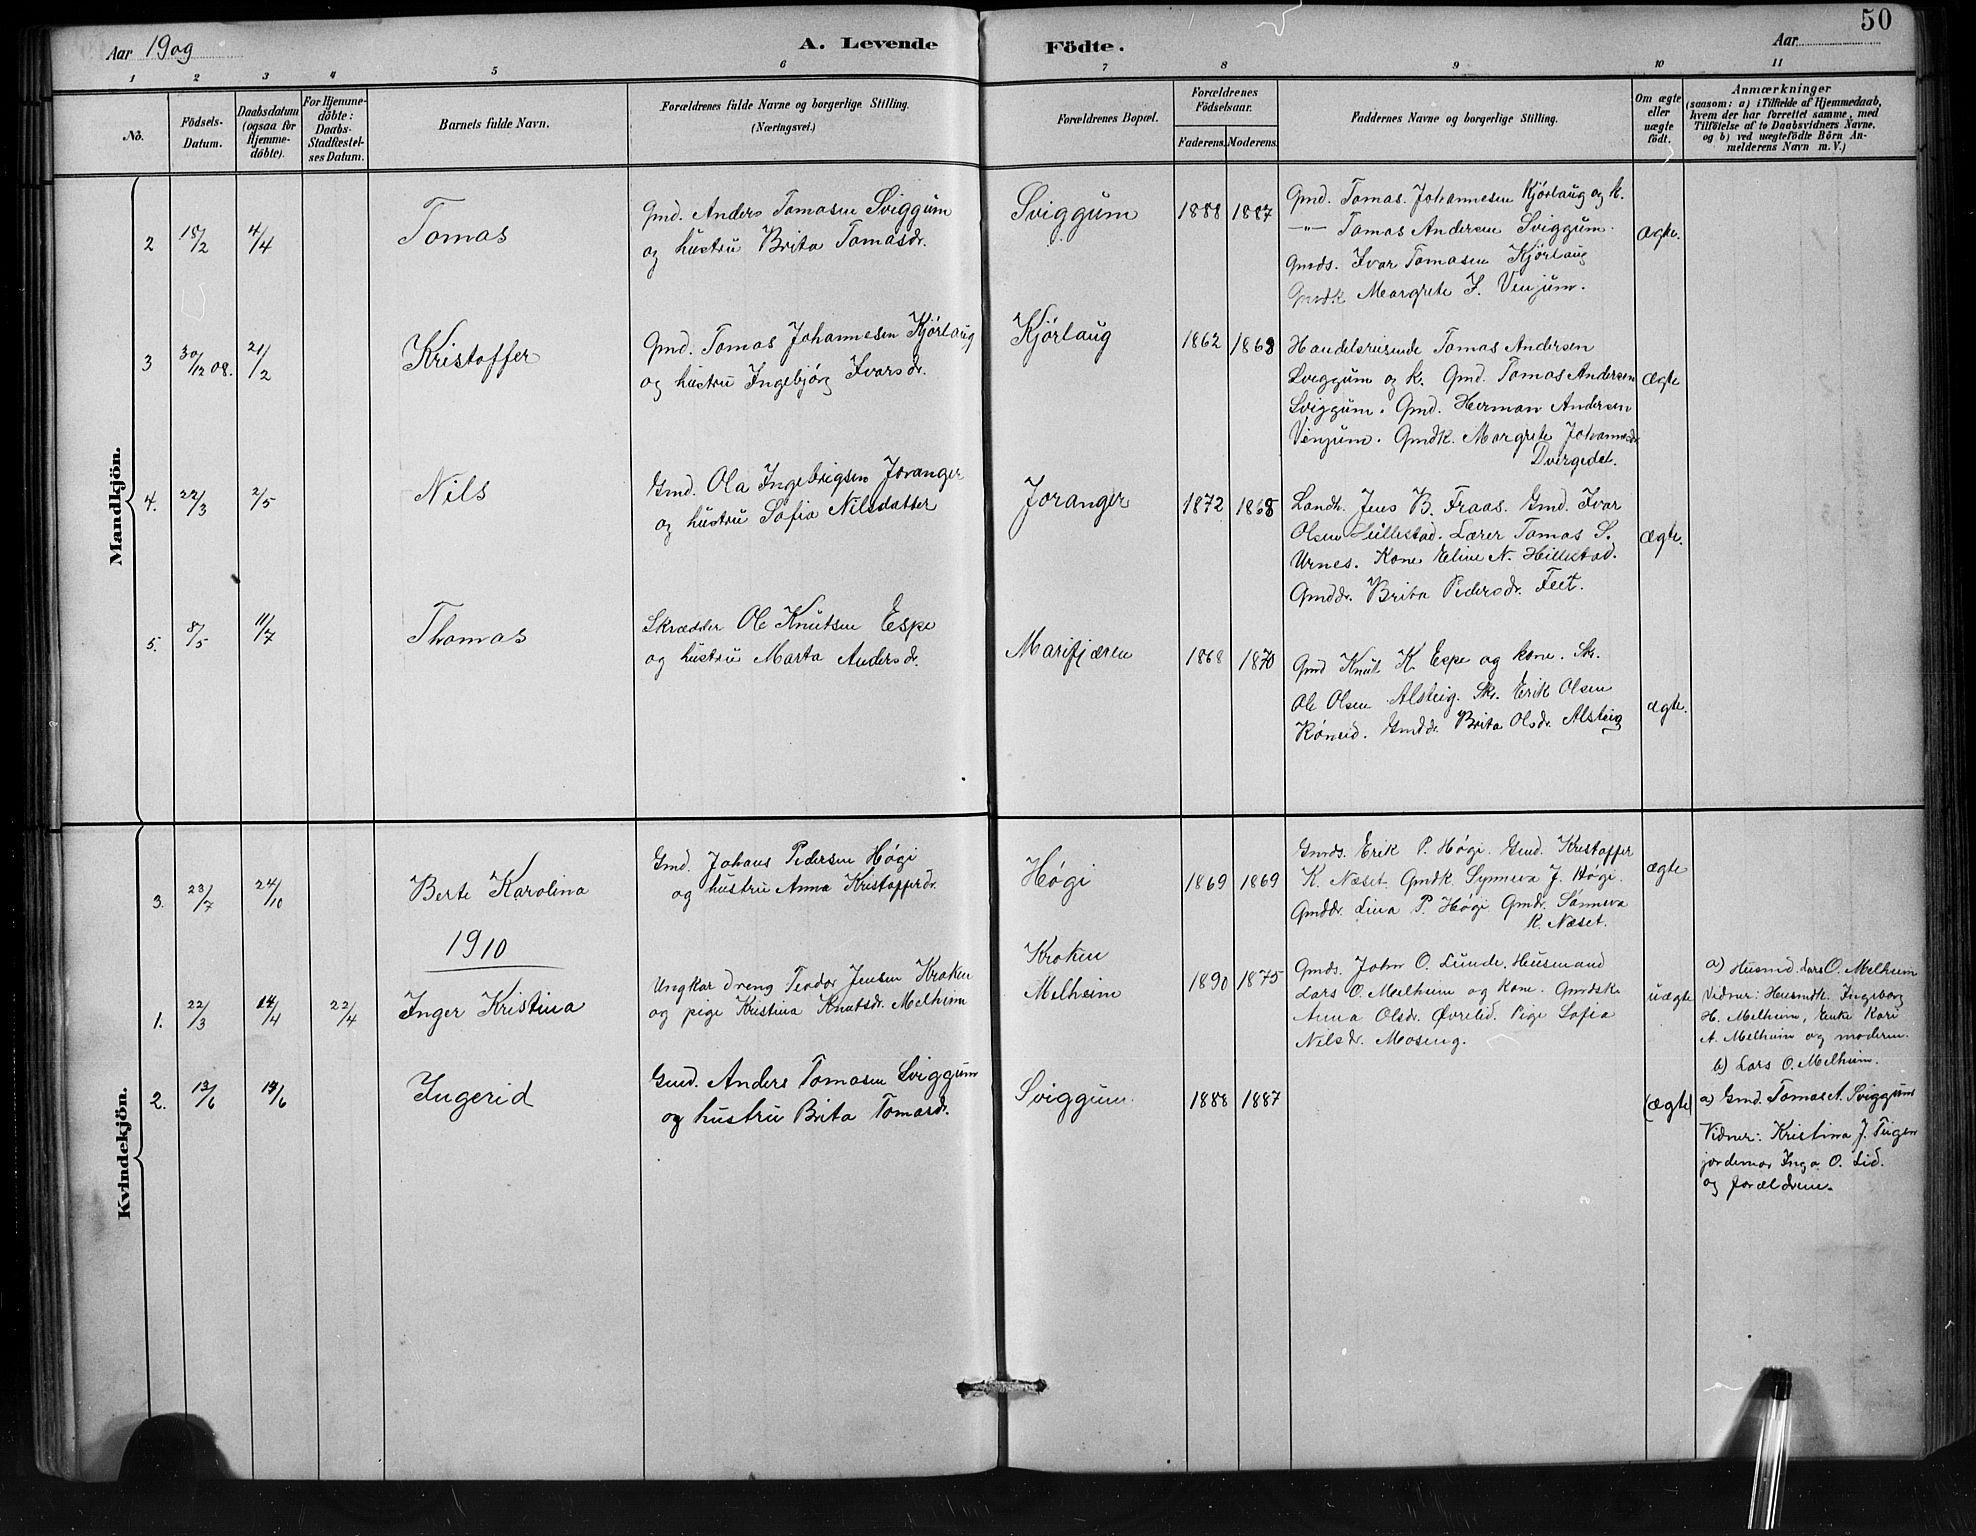 50
Aar 1909
A. Levende Födte.
Aar
1 2 3 4 5 6 7 8 9 10 11
No.
Födsels-Datum.
Daabsdatum (ogsaa for Hjemmedöbte).
For Hjemmedöbte: Daabs-Stadfæstelses Datum.
Barnets fulde Navn.
Forældrenes fulde Navne og borgerlige Stilling. (Næringsvei.)
Forældrenes Bopæl.
Forældrenes Födselsaar.
Faderens. Moderens.
Faddernes Navne og borgerlige Stilling.
Om ægte eller uægte födt.
Anmærkninger
(saasom: a) i Tilfælde af Hjemmedaab,
hvem der har forrettet samme, med
Tilföielse af to Daabsvidners Navne,
og b) ved uægtefödte Börn An-
melderens Navn m. V.)
Mandkjön.
2 15/2 4/4
Tomas
Gmd. Anders Tomasen Sviggum
og hustru Brita Tomasdr.
Sviggum
1888 1887
Gmd. Tomas Johannesen Kjörlaug og k.
—"— Tomas Andersen Sviggum.
Gmds. Ivar Tomasen Kjörlaug
Gmdk Margrete I. Venjum.
ægte.
3 30/12 08. 21/2
Kristoffer
Gmd. Tomas Johannesen Kjörlaug
og hustru Ingebjørg Ivarsdr.
Kjörlaug
1862 1868
Handelsreisende Tomas Andersen
Sviggum og k. Gmd. Tomas Andersen
Sviggum. Gmd. Herman Andersen
Venjum. Gmdk. Margrete Johannesdr
Dvergedel.
ægte
4. 22/3 2/5
Nils
Gmd. Ola Ingebrigsen Joranger
og hustru Sofia Nilsdatter
Joranger
1872 1868
Landh. Jens B. Fraas. Gmd. Ivar
Olsen Lillestad. Lærer Tomas S.
Urnes. Kone Eline N. Hillestad.
Gmddr. Brita Pedersdr. Feet.
ægte.
5. 8/5 11/7
Thomas
Skrædder Ole Knutsen Espe
og hustru Marta Andersdr.
Marifjæren
1868 1870
Gmd Knut K. Espe og kone. Skr.
Ole Olsen Alsteig. Skr. Erik Olsen
Röneid. Gmddr. Brita Olsdr. Alsteig
ægte.
Kvindekjön.
3. 23/7 24/10
Berte Karolina
Gmd. Johans Pedersen Høgi
og hustru Anna Kristofferdr.
Høgi
1869 1869
Gmds. Erik P. Høgi. Gmd. Kristoffer
K. Næset. Gmdk. Synneva J. Høgi.
Gmddr. Lina P. Høgi Gmdr. Sønneva
K. Næset.
ægte
1910
1. 22/3 14/4 22/4
Inger Kristina
Ungkar dreng Teodor Jensen Kroken
og pige Kristina Knutsdr. Melheim
Kroken
Melheim
1890 1875
Gmds. John O. Lunde, Husmand
Lars O. Melheim og Kone. Gmdsk
Anna Olsdr. Øvrelid. Pige Sofia
Nilsdr. Moseng.
uægte
a) Husmd. Lars O. Melheim
Vidner: Husmdk. Ingeborg
H. Melheim, Enke Kari
A. Melheim og moderen.
b) Lars O. Melheim.
2. 13/6 17/6
Ingerid
Gmd. Anders Tomasen Sviggum
og hustru Brita Tomasdr.
Sviggum.
1888 1887
(ægte)
a) Gmd. Tomas A. Sviggum
Vidner: Kristina J. Teigen
jordemor Inga O. Lid.
og forældrene.